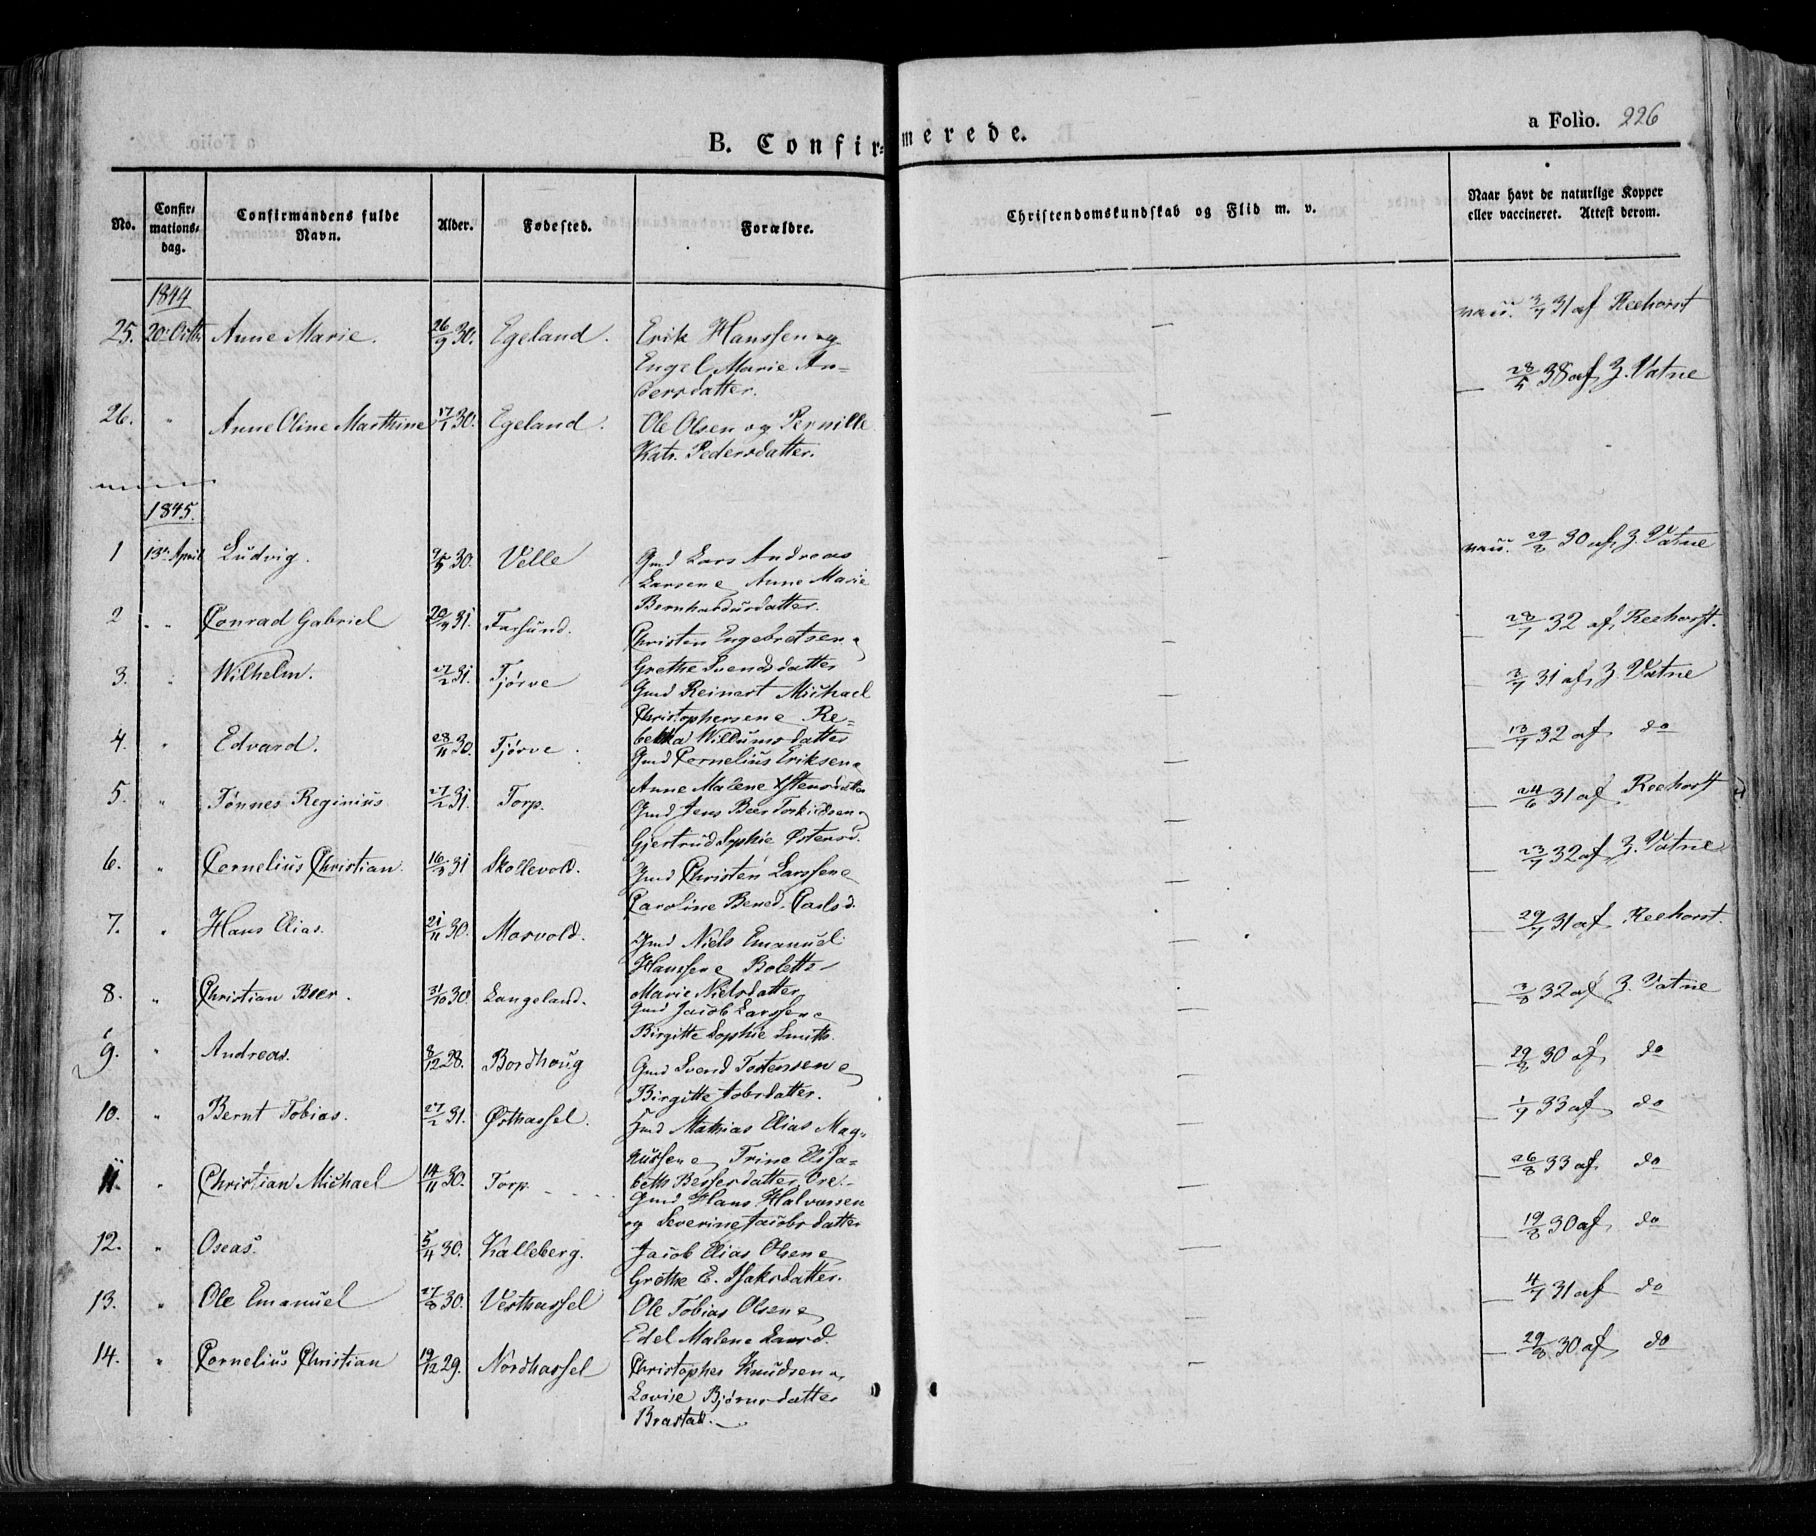 B. Confirmerede.
a Folio. 226
No. Confirmationsdag. Confirmandens fulde Navn. Alder. Fødested. Forældre. Christendomskundskab og Flid m. v. Naar havt de naturlige Kopper eller vaccineret. Attest derom.
1844
25. 20. Octbr Anne Marie. 26/9 30. Egeland. Erik Hanssen og — vacc. 3/7 31 af Reehorst
Engel Marie An-
dersdatter.
26. " Anne Oline Marthine 17/1 30. Egeland. Ole Olsen og Pernille — — 28/5 38 af Z. Vatne
Katr. Pedersdatter.
1845.
1 13de April Ludvig. 9/5 30. Velle Gmd Lars Andreas — vacc. 29/8 30 af Z. Vatne
Larsen e Anne Marie
Bernhardusdatter.
2 " Conrad Gabriel 20/4 31. Farsund. Christen Engebretsen e — — 28/7 32 af Reehorst.
Grethe Svendsdatter
3. " Wilhelm. 27/2 31. Tjørve Gmd Reinert Michael — — 3/7 31 af Z. Vatne
Christophersen e Re-
bekka Willumsdatter
4. " Edvard. 28/11 30. Tjørve. Gmd Cornelius Eriksen e — — 13/7 32 af do
Anne Malene Østensdatter
5. " Tønnes Reginius 27/2 31. Torp. Gmd Jens Beer Torkildsen e — — 24/6 31 af Reehorst
Gjertrud Sophie Østensd.
6. " Cornelius Christian. 16/3 31 Skollevold. Gmd Christen Larssen e — — 23/7 32 af Z. Vatne
Caroline Bened. Carlsd.
7. " Hans Elias. 21/11 30. Morvold. Gmd Niels Emanuel — — 29/7 31 af Reehorst.
Hanssen e Bolette
Marie Nielsdatter
8. " Christian Beer. 31/10 30. Langeland. Gmd Jacob Larssen e — — 3/8 32 af Z. Vatne
Birgitte Sophie Smith.
9. " Andreas. 8/12 28. Bordhoug Gmd Svend Tostensen e — — 29/8 30 af do
Birgitte Jobsdatter.
10. " Bernt Tobias. 27/2 31. Østhassel. Gmd Mathias Elias Mag- — — 1/7 33 af do
nussen e Trine Elisa-
beth Bessesdatter Ore.
11. " Christian Michael 14/11 30. Torp. Gmd Hans Halvorsen — — 26/8 33 af do
og Severine Jacobsdatter
12. " Oseas. 5/4 30. Kalleberg. Jacob Elias Olsen e — — 19/8 30 af do
Grethe E. Isaksdatter.
13. " Ole Emanuel 27/8 30. Vesthassel Ole Tobias Olsen e — 4/7 31 af do
Edel Malene Larsd.
14. " Cornelius Christian 19/12 29. Nordhassel Christopher Knudsen e — — 29/8 30 af do
Lovise Bjørnsdatter
Brastad.